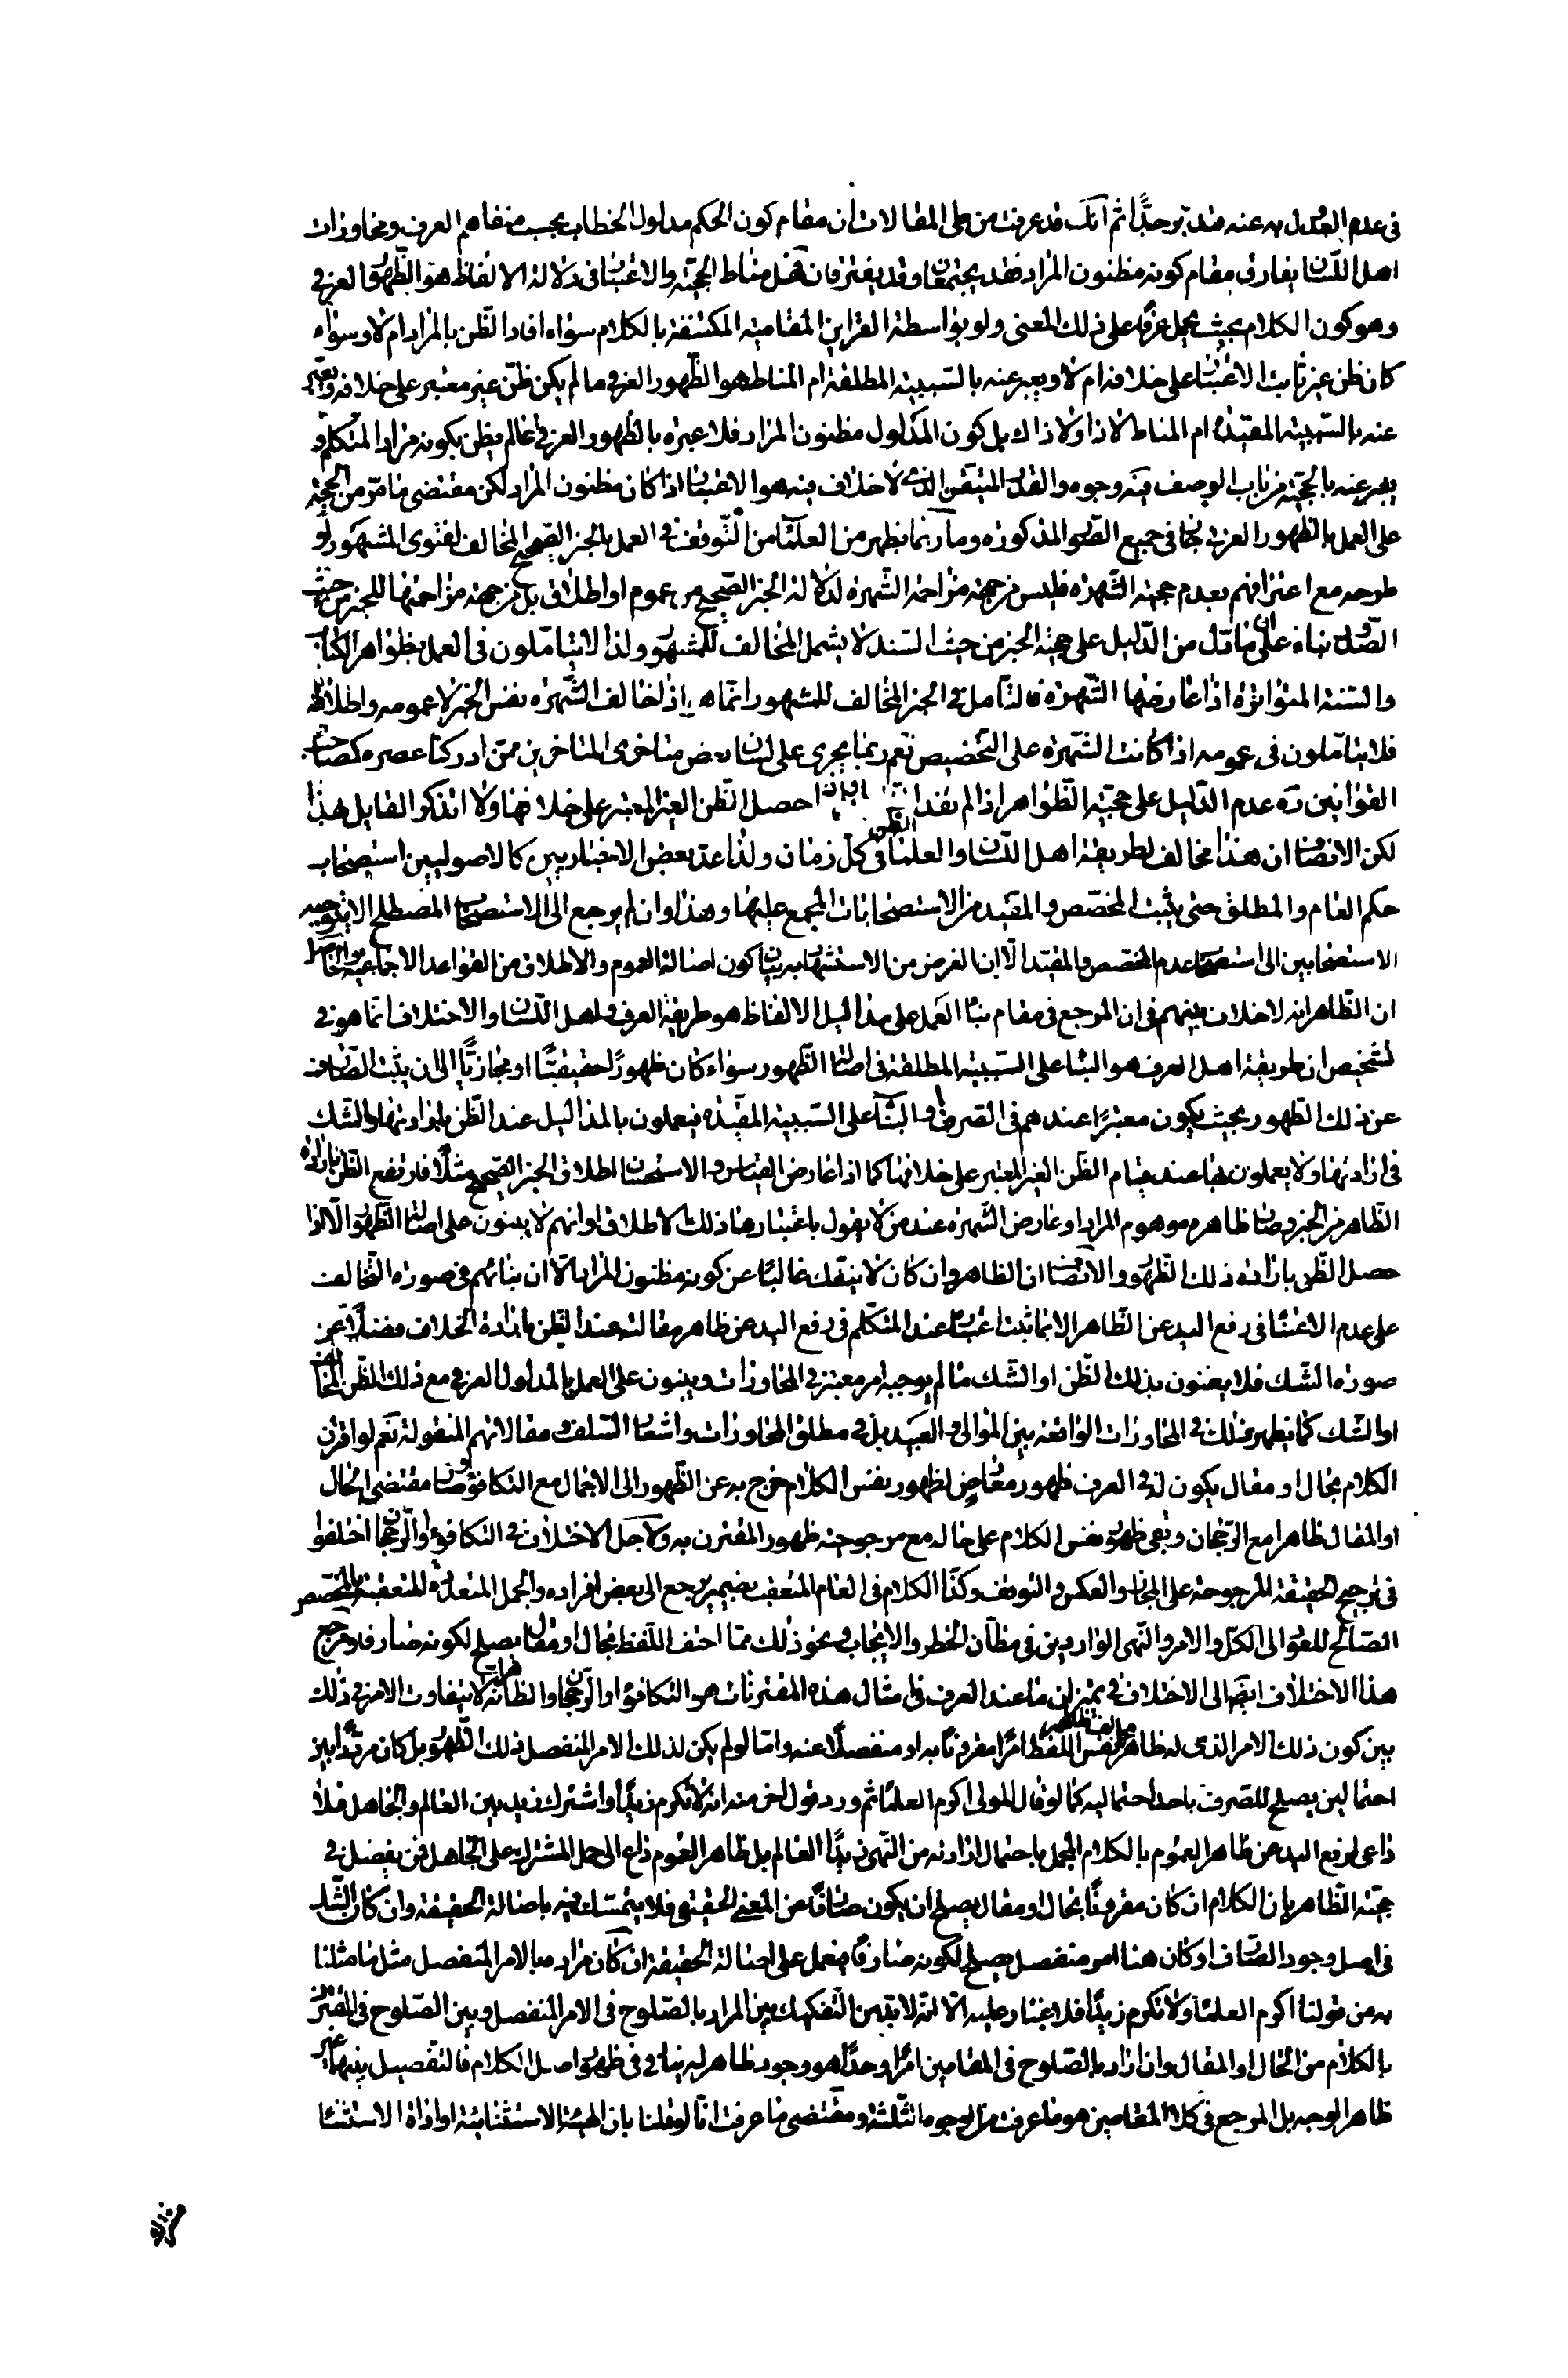 فى عدم العدول عنه فتدبر جدّا ثم انك قد عرفت من طى المقالات ان مقام كون الحكم مدلول الخطاب بحسب متفاهم العرف ومحاورات
اهل اللسان يفارق مقام كونه مظنون المراد فقد يجتمعان وقد يفترقان فهل مناط الحجية والاعتبار فى دلالة الالفاظ هو الظهور العرفى
وهو كون الكلام بحيث يحمل عرفا على ذلك المعنى ولو بواسطة القراين المقامية المكتنفة بالكلام سواء افاد الظن بالمراد ام لا وسواء
كان ظن غير ثابت الاعتبار على خلافه ام لا ويعبر عنه بالسببية المطلقة ام المناط هو الظهور العرفى ما لم يكن ظن غير معتبر على خلافه ويعبر
عنه بالسببية المقيدة ام المناط لا ذا ولا ذاك بل كون المدلول مظنون المراد فلا عبرة بالظهور العرفى ما لم يظن بكونه مراد المتكلم و
يعبر عنه بالحجية من باب الوصف فيه وجوه والقدر المتيقن الذى لا خلاف فيه هو الاعتبار اذا كان مظنون المراد لكن مقتضى ما مر من الحجة
على العمل بالظهور العرفى بجانى جميع الصور المذكورة وما ربما يظهر من العلماء من التوقف فى العمل بالخبر الصحيح المخالف لفتوى المشهور او
طرحه مع اعترافهم بعدم حجية الشهرة فليس من جهة مزاحمة الشهرة لدلالة الخبر الصحيح من عموم او اطلاق بل من جهة مزاحمتها للخبر من حيث
الصدور بناء على ان ما دل من الدليل على حجية الخبر من حيث السند لا يشمل المخالف للمشهور ولذا لا يتاملون فى العمل بظواهر الكتاب
والسنة المتواترة اذا عارضها الشهرة فالتامل فى الخبر المخالف للمشهور انما هو اذا خالف الشهرة نفس الخبر لا عمومه واطلاقه
فلا يتاملون فى عمومه اذا كانت الشهرة على التخصيص نعم ربما يجرى على لسان بعض متاخرى المتاخرين ممن ادركنا عصره كصاحب
القوانين ره عدم الدليل على حجية الظواهر اذا لم تفد الظن او اذا حصل الظن الغير المعتبر على خلافها ولا اتذكر القايل بهذا
لكن الانصاف ان هذا مخالف لطريقة اهل اللسان والعلماء فى كل زمان ولذا عد بعض الاخباريين كالاصوليين استصحاب
حكم العام والمطلق حتى يثبت المخصص والمقيد من الاستصحابات المجمع عليها وهذا وان لم يرجع الى الاستصحاب المصطلح الا بتوجيه
الاستصحابين الى استصحاب عدم المخصص والمقيد الا ان الغرض من الاستشهاد به بيان كون اصالة العموم والاطلاق من القواعد الاجماعية والحاصل
ان الظاهر انه لا خلاف بينهم فى ان المرجع فى مقام بناء العمل على مداليل الالفاظ هو طريقة العرف واهل اللسان والاختلاف انما هو فى
تشخيص ان طريقة اهل العرف هو البناء على السببية المطلقة فى اصالة الظهور سواء كان ظهورا حقيقيا او مجازيا الى ان يثبت الصارف
عن ذلك الظهور بحيث يكون معتبرا عندهم فى الصرف او البناء على السببية المقيدة فيعملون بالمداليل عند الظن بارادتها والشك
فى ارادتها ولا يعملون بها عند قيام الظن الغير المعتبر على خلافها كما اذا عارض القياس والاستحسان اطلاق الخبر الصحيح مثلا فارتفع الظن بارادة
الظاهر من الخبر وصار ظاهره موهوم المراد او عارض الشهرة عند من لا يقول باعتبارها ذلك الاطلاق او انهم لا يبنون على اصالة الظهور الا اذا
حصل الظن بارادة ذلك الظهور والانصاف ان الظاهر وان كان لا ينفك غالبا عن كونه مظنون المراد الا ان بنائهم فى صورة التخالف
على عدم الاعتناء فى رفع اليد عن الظاهر الا بما ثبت اعتباره عند المتكلم فى رفع اليد عن ظاهر مقالته عند الظن بارادة الخلاف فضلا عن
صورة الشك فلا يعتنون بذلك الظن او الشك ما لم يوجبه امر معتبر فى المحاورات ويبنون على العمل بالمدلول العرفى مع ذلك الظن المخالف
او الشك كما يظهر ذلك فى المحاورات الواقعة بين الموالى والعبيد بل فى مطلق المحاورات واشعار السلف ومقالاتهم المنقولة نعم لو اقترن
الكلام بحال او مقال يكون له فى العرف ظهور معارض لظهور نفس الكلام خرج به عن الظهور الى الاجمال مع التكافؤ وصار مقتضى الحال
او المقال ظاهرا مع الرجحان وبقى ظهور نفس الكلام على حاله مع مرجوحية ظهور المقترن به ولاجل الاختلاف فى التكافؤ او الرجحان اختلفوا
فى ترجيح الحقيقة المرجوحة على المجاز والعكس والتوقف وكذا الكلام فى العام المتعقب بضمير يرجع الى بعض افراده والجمل المتعددة المتعقبة بالمخصص
الصالح للعود الى الكل والامر والنهى الواردين فى مظان الخطر والايجاب ونحو ذلك مما احتف اللفظ بحال او مقال يصلح لكونه صارفا ومرجع
هذا الاختلاف ايضا الى الاختلاف فى تميز ان ما عند العرف فى امثال هذه المقترنات هو التكافؤ او الرجحان والظاهر انه لا يتفاوت الامر فى ذلك
بين كون ذلك الامر الذى له ظاهر مخالف لظاهر نفس اللفظ امرا مقرونا به او منفصلا عنه واما لو لم يكن لذلك الامر المنفصل ذلك الظهور بل كان مرددا بين
احتمالين يصلح للصرف باحد احتماليه كما لو قال المولى اكرم العلماء ثم ورد قول اخر منه انه لا تكرم زيدا واشترك زيد بين العالم والجاهل فلا
داعى لرفع اليد عن ظاهر العموم بالكلام المجمل باحتمال ارادته من النهى زيدا العالم بل ظاهر العموم داع الى حمل المشترك على الجاهل فمن يفصل فى
حجية الظاهر بان الكلام ان كان مقرونا بحال او مقال يصلح ان يكون صارفا عن المعنى الحقيقى فلا يتمسك فيه باصالة الحقيقة وان كان الشك
فى اصل وجود الصارف او كان هنا امر منفصل يصلح لكونه صارفا فيعمل على اصالة الحقيقة ان كان مراده بالامر المنفصل مثل ما مثلنا
به من قولنا اكرم العلماء ولا تكرم زيدا فلا غبار عليه الا انه لا بد من التفكيك بين المراد بالصلوح فى الامر المنفصل وبين الصلوح فى المقترن
بالكلام من الحال او المقال وان اراد بالصلوح فى المقامين امرا واحدا هو وجود ظاهر له ينافى ظهور اصل الكلام فالتفصيل بينهما غير
ظاهر الوجه بل المرجع فى كلا المقامين هو ما عرفت من الوجوه الثلثة ومقتضى ما عرفت انا لو قلنا بان الهيئة الاستثنائية او اداة الاستثناء